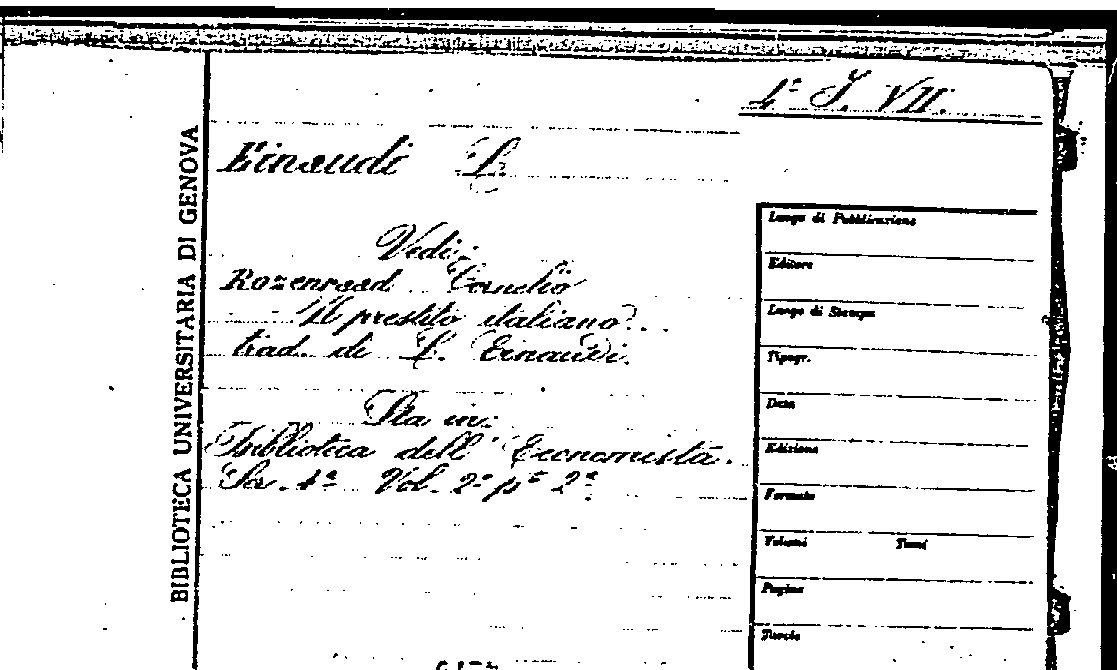 4ª J. VII.
BIBLIOTECA UNIVERSITARIA DI GENOVA
Einaudi L.
Vedi:
Rozenraad Cornelio
Il prestito italiano.
trad. di L. Einaudi.
Sta in:
Biblioteca dell' Economista.
Ser. 4ª Vol. 2º pte 2ª
Luogo di Pubblicazione
Editore
Luogo di Stampa
Tipogr.
Data
Edizione
Formato
Volumi Tomi
Pagine
Tavole